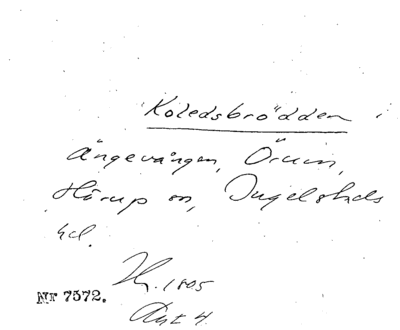 Koledsbrödden i
Ängevången, Örum,
Hörup sn, Ingelstads
hd.
1805
Akt 4.
Nr 7572.